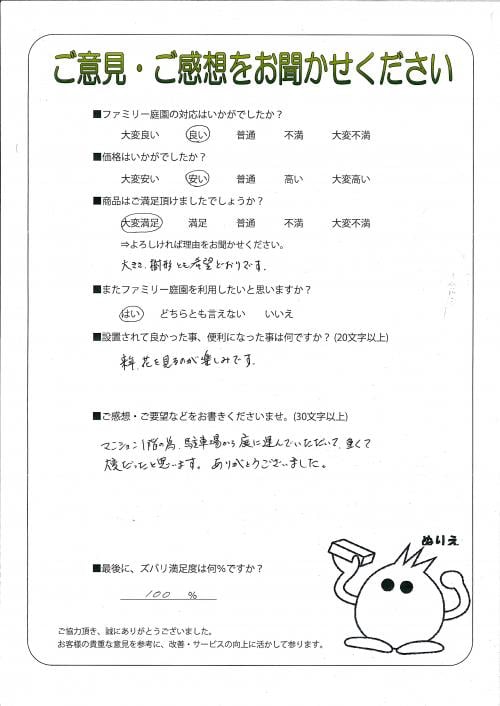 ご意見・ご感想をお聞かせください
■ファミリー庭園の対応はいかがでしたか？
大変良い 良い 普通 不満 大変不満
■価格はいかがでしたか？
大変安い 安い 普通 高い 大変高い
■商品はご満足頂けましたでしょうか？
大変満足 満足 普通 不満 大変不満
⇒よろしければ理由をお聞かせください。
大きさ、樹形とも希望どおりです。
■またファミリー庭園を利用したいと思いますか？
はい どちらとも言えない いいえ
■設置されて良かった事、便利になった事は何ですか？(20文字以上)
来年、花を見るのが楽しみです。
■ご感想・ご要望などをお書きくださいませ。(30文字以上)
マンション1階の為、駐車場から庭に運んでいただいて、重くて
大変だったと思います。ありがとうございました。
ぬりえ
■最後に、ズバリ満足度は何％ですか？
100 %
ご協力頂き、誠にありがとうございました。
お客様の貴重な意見を参考に、改善・サービスの向上に活かして参ります。